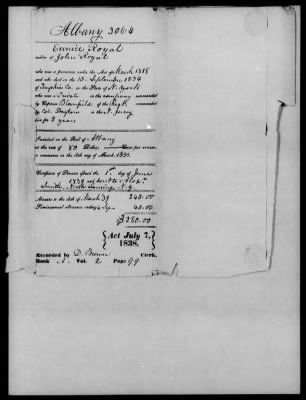 Albany 3064
Eunice Royal
widow of John Royal
who was a pensioner under the Act of March 1818
and who died on the 13. September 1834
of Co. in the State of N. York
who was a Private in the company commanded
by Captain Bloomfield of the Regt. commanded
by Col. Dayton in the N. Jersey
line for 2 years
Inscribed on the Roll of Albany
at the rate of 80 Dollars Cents per annum,
to commence on the 4th day of March, 1836.
Certificate of Pension issued the 1st day of June
1839 and sent to
Smith, N.Y.
Arrears to the 4th of March 39 240.00
Semi-annual allowance ending 4 Sep. 40.00
$280.00
{ Act July 7, 1838. }
Recorded by D. Brown Clerk,
Book A. Vol. 2 Page 99